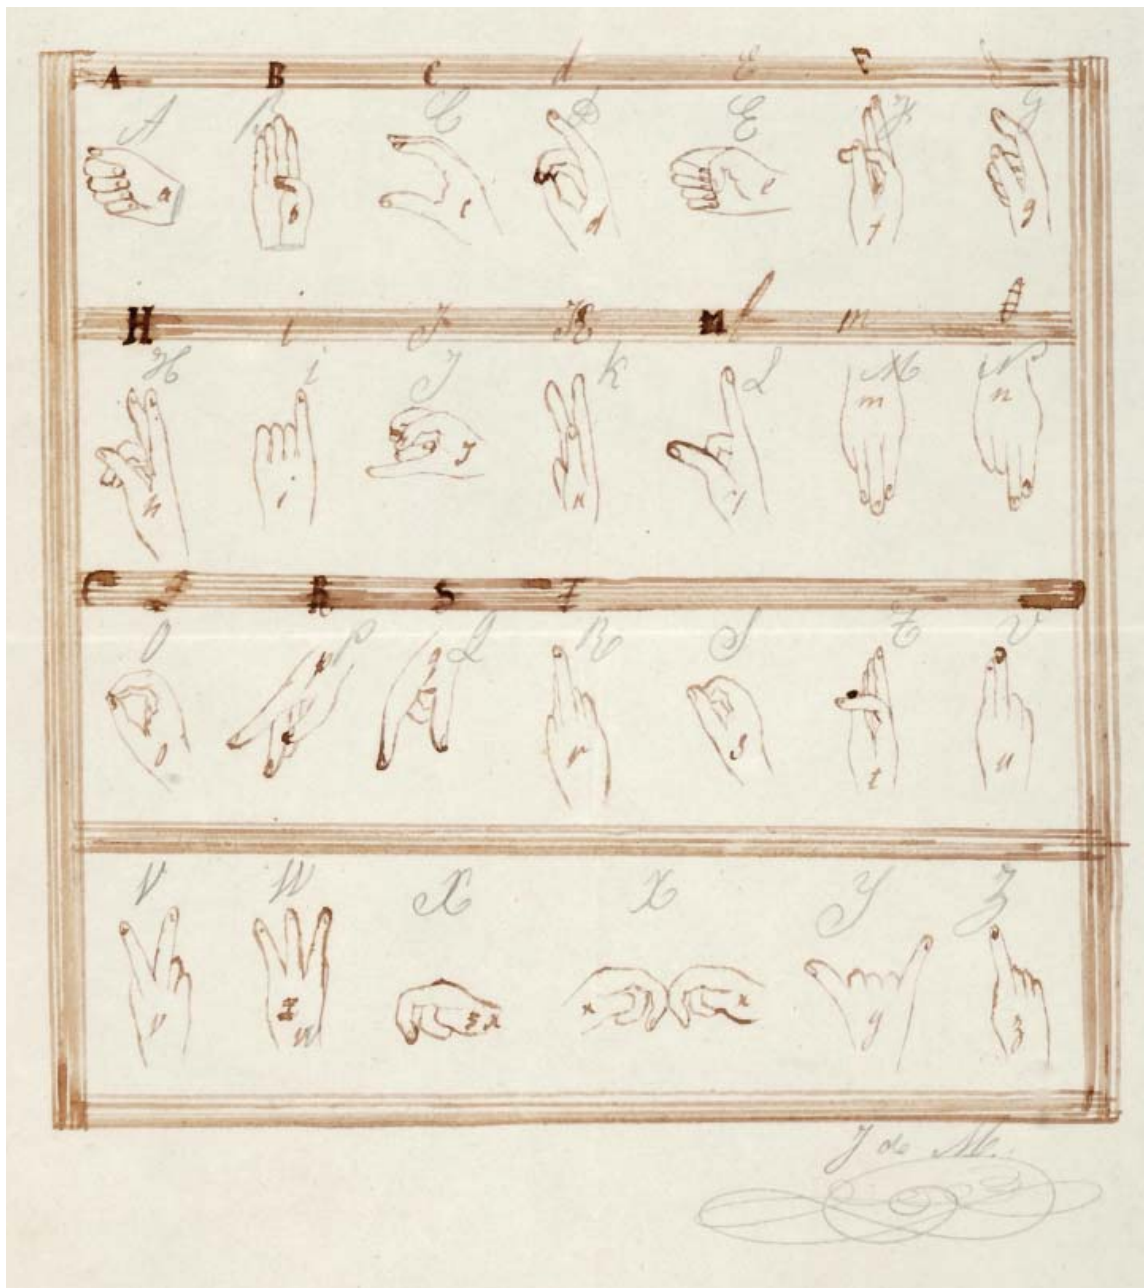 A B C d E F g
A B C D E F G
a b c d e f g
H i J K M l m
H i J K L M N
m n
h i j k l
R S T
O P Q R S T U
o r s t u
V W X X Y Z
v w x x x y z
J de M.